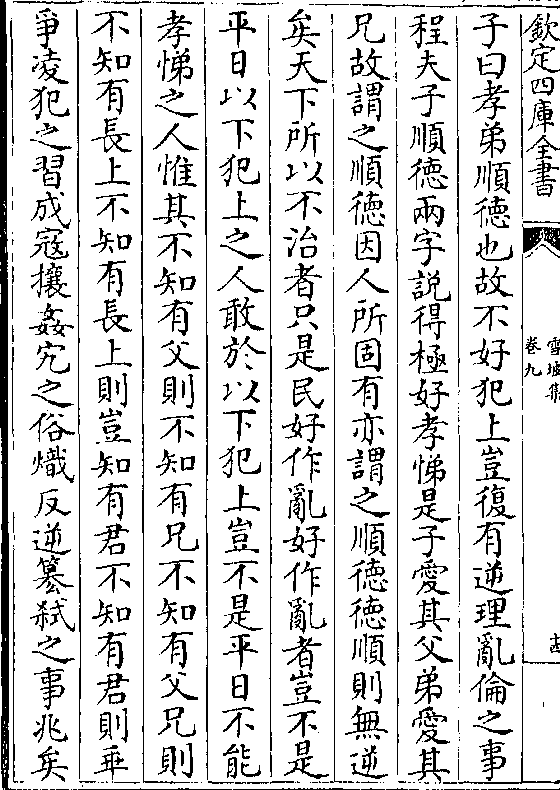 欽定四庫全書
雪坡集
卷九
十四
子曰孝弟順徳也故不好犯上豈復有逆理亂倫之事
程夫子順徳兩字説得極好孝悌是子愛其父弟愛其
兄故謂之順徳因人所固有亦謂之順徳徳順則無逆
矣天下所以不治者只是民好作亂好作亂者豈不是
平日以下犯上之人敢於以下犯上豈不是平日不能
孝悌之人惟其不知有父則不知有兄不知有父兄則
不知有長上不知有長上則豈知有君不知有君則乖
爭凌犯之習成寇攘姦宄之俗熾反逆簒弑之事兆矣